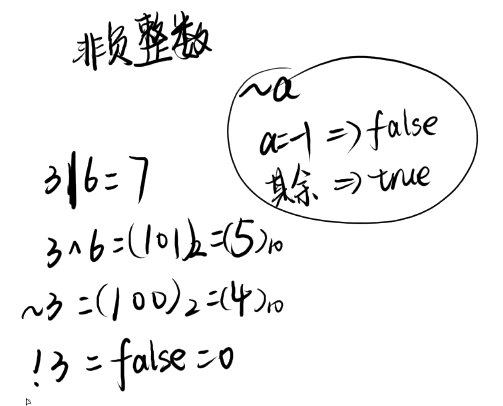 非负整数
~a
a=-1 => false
其余 => true
3|6=7
3^6=(101)₂=(5)₁₀
~3=(100)₂=(4)₁₀
!3=false=0